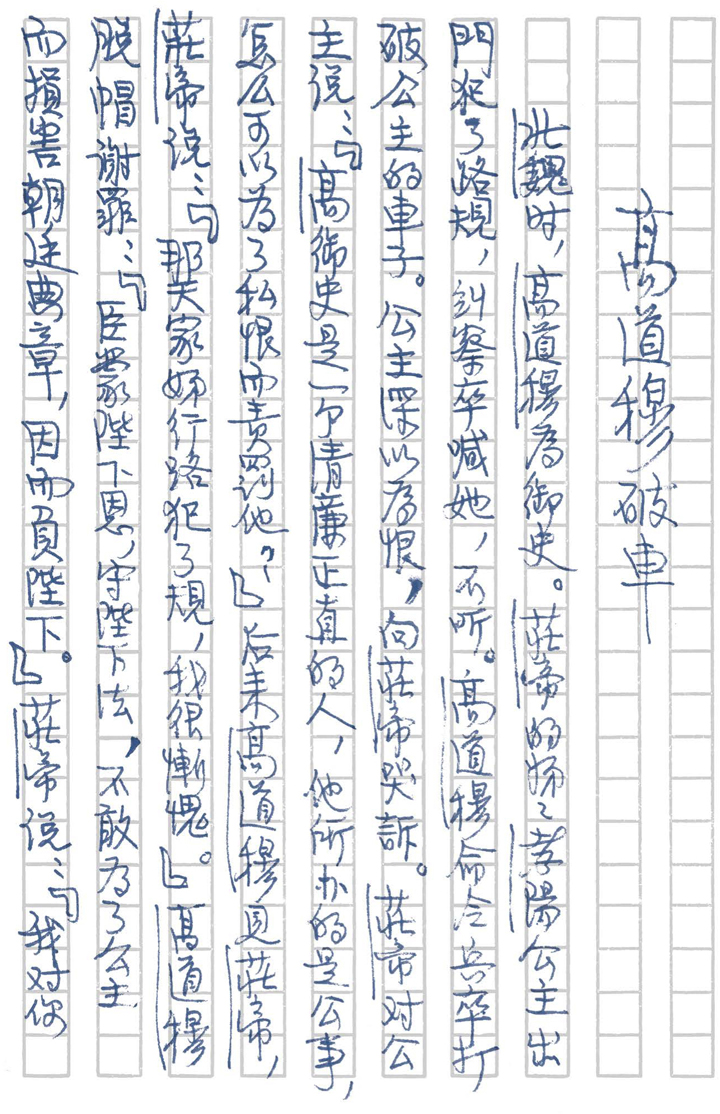 高道穆破車
北魏时，高道穆為御史。莊帝的姊〻孝陽公主出
門犯了路規，糾察卒喊她，不听。高道穆命令兵卒打
破公主的車子。公主深以為恨，向莊帝哭訴。莊帝对公
主说：『高御史是一个清廉正直的人，他所办的是公事，
怎么可以為了私恨而責罰他？』后来高道穆見莊帝，
莊帝说：『那天家姊行路犯了規，我很慚愧。』高道穆
脱帽謝罪：『臣蒙陛下恩，守陛下法，不敢为了公主
而損害朝廷典章，因而負陛下。』莊帝说：『我对你